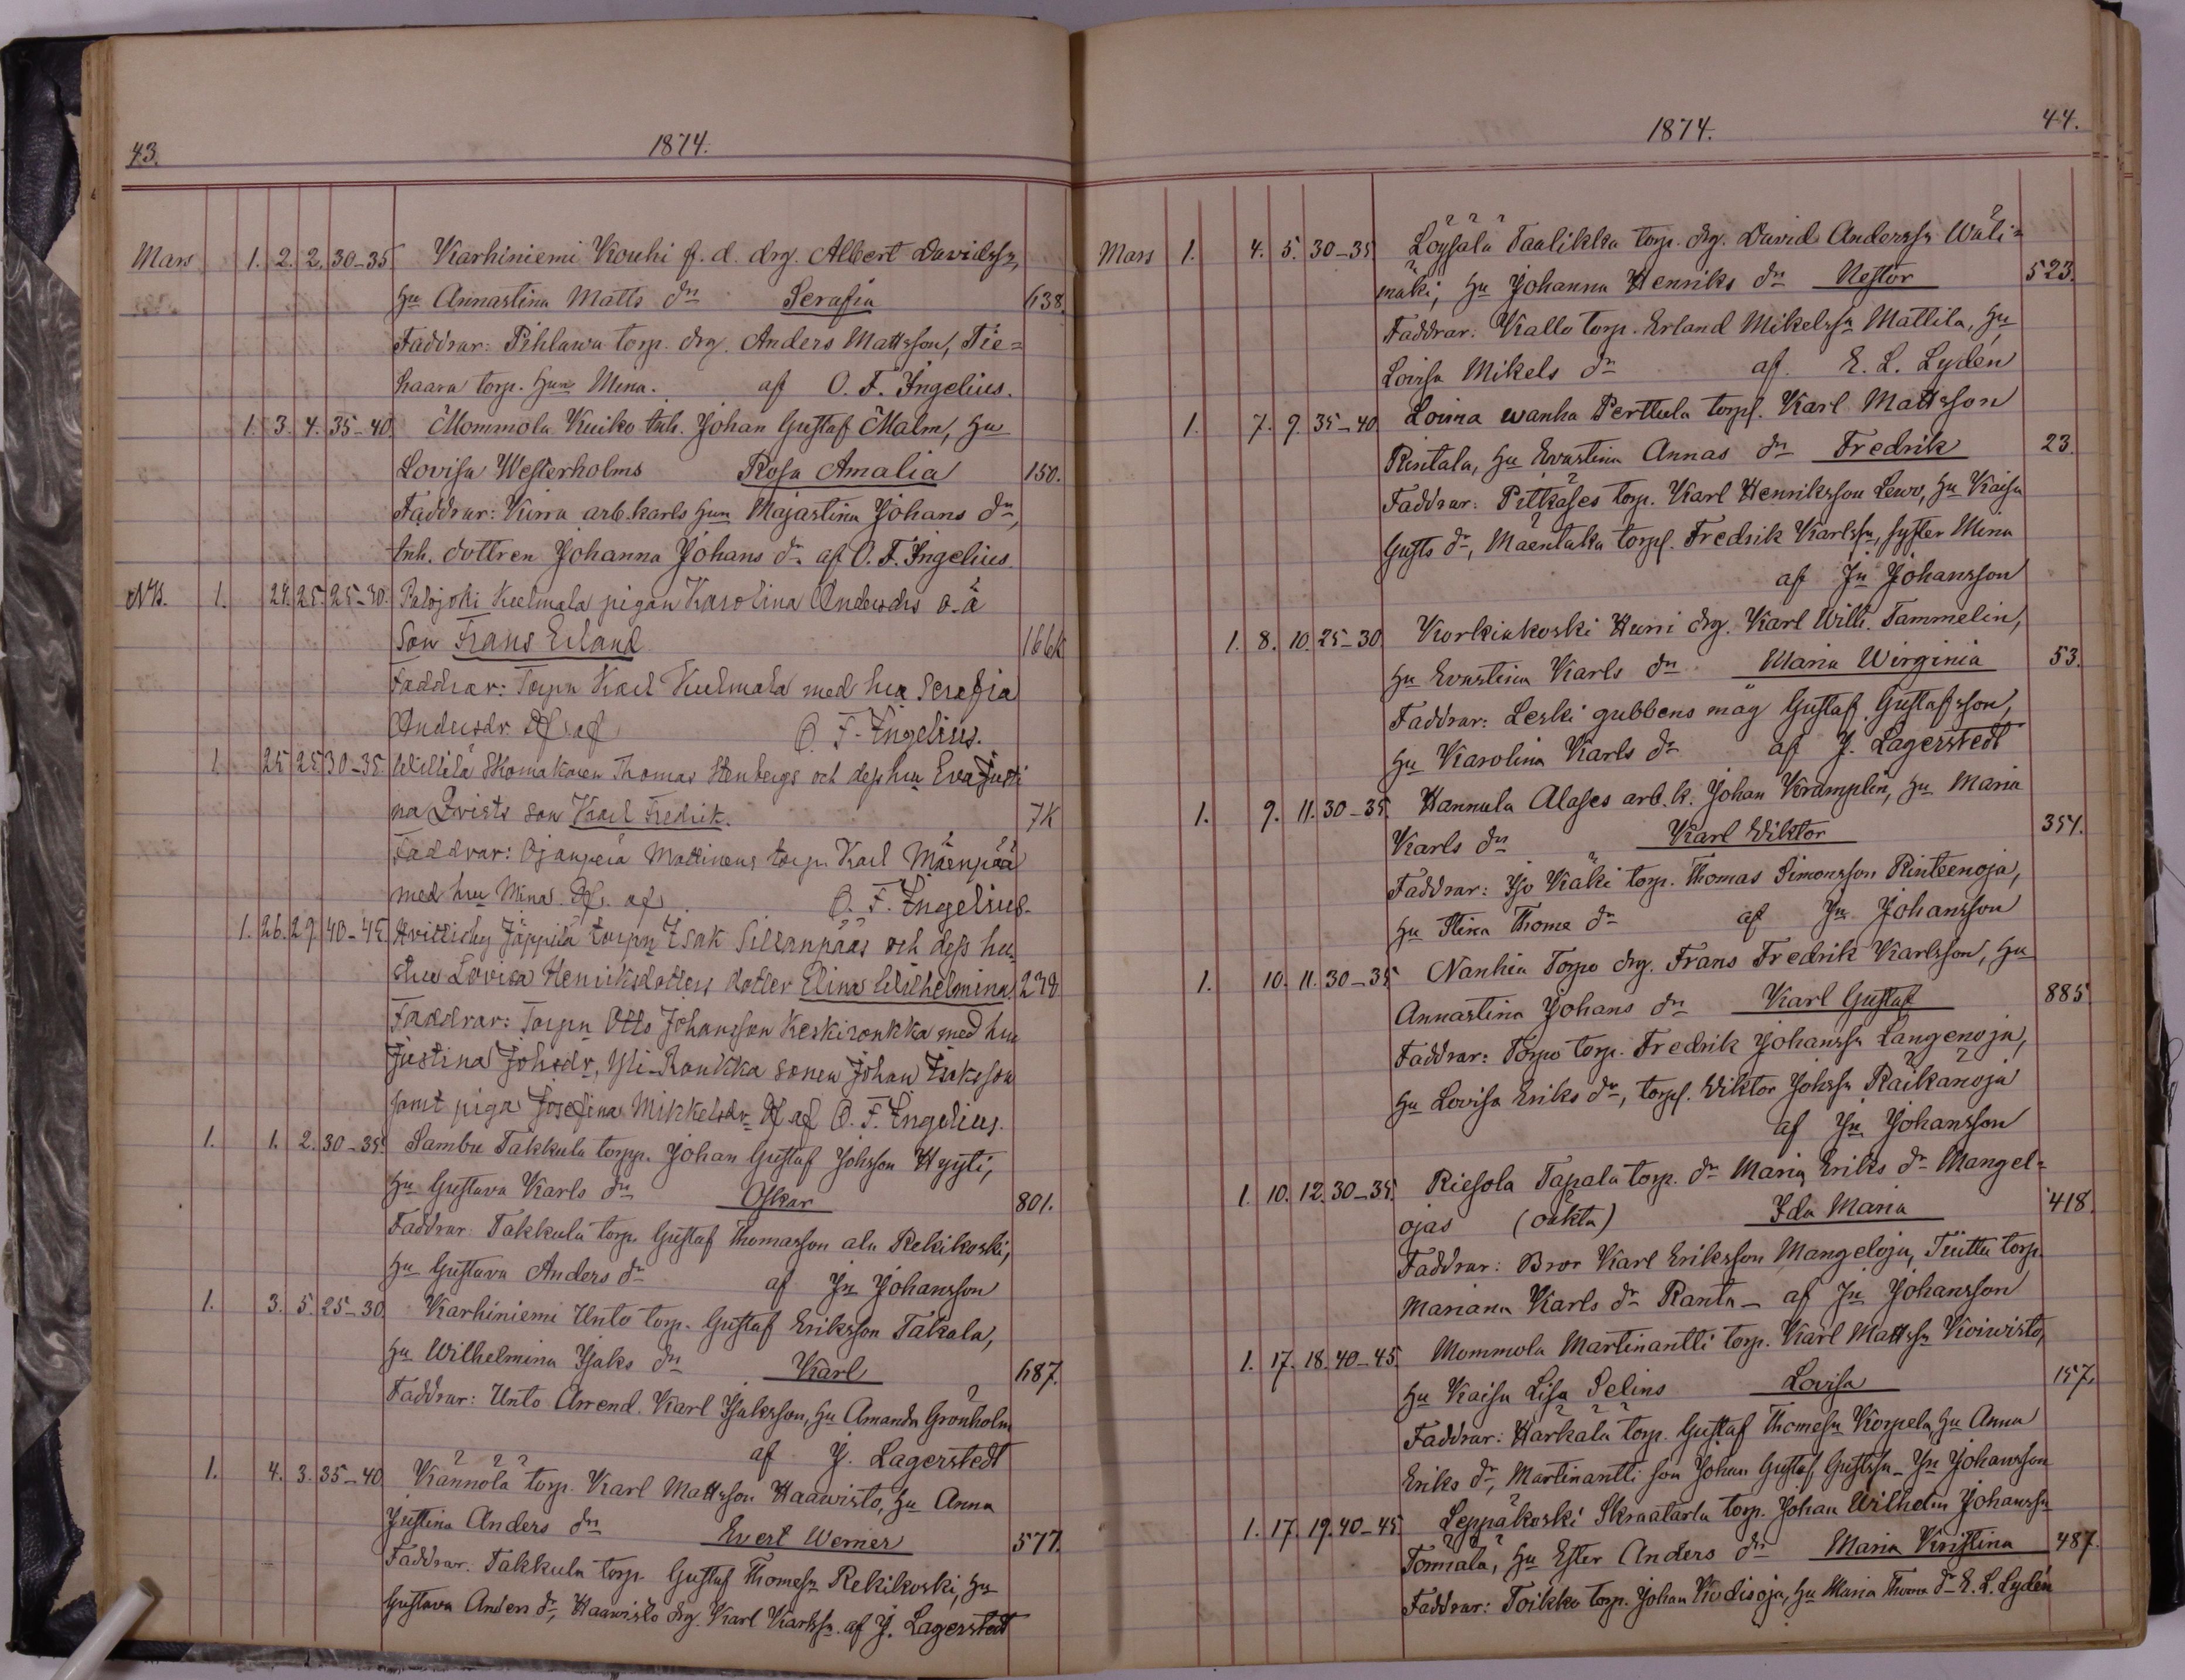 43.
1874.
Mars 1. 2. 2. 30-35 Karhiniemi Kouhi f. d. drg. Albert Davidssn,
Hu Annastina Matts dn Serafia 638.
Faddrar: Pihlawa torp. drg. Anders Mattsson, Tie=
haara torp. Hun Mina. af O. F. Ingelius.
1. 3. 4. 35-40 Mommola Kuiko Inh. Johan Gustaf Malm, Hu
Lovisa Westerholms Rosa Amalia 150.
Faddrar: Kirra arb.karls Hun Majastina Johans dn,
Inh. dottren Johanna Johans dr. af O. F. Ingelius.
NB. 1. 24. 25. 25-30. Palojoki Keelmala pigan Karolina Andersdrs o. ä
Son Frans Erland 166K
Faddrar: Torpn Karl Keelmala med hu Serafia
Andersdr Df. af O. F. Ingelius.
1. 25 25 30-35 Willilä Skomakaren Thomas Stenbergs och dess hu Eva Justi
na Qvists son Karl Fredrik. 7K
Faddrar: Ojanperä Mattinens torpn Karl Mäenpää
med hu Mina. Df. af O. F. Ingelius.
1. 26. 29. 40-45 Kvittichy Jäppilä torpn Isak Sillanpääs och dess hu
stru Lovisa Henriksdotters dotter Elina Wilhelmina. 238
Faddrar: Torpn Otto Johansson Keskironkka med hu
Justina Johsdr, Yli-Ronkka sonen Johan Isaksson
samt piga Josefina Mikkelsdr. Df af O. F. Ingelius.
1. 1. 2. 30-35. Sambu Takkula torpp. Johan Gustaf Johsson Hyyti,
Hu Gustava Karls dn Oskar 801.
Faddrar: Takkula torp. Gustaf Thomasson ala Rekikoski,
Hu Gustava Anders dr af Jn Johansson
1. 3. 5. 25-30. Karhiniemi Unto torp. Gustaf Eriksson Takala,
Hu Wilhelmina Isaks dn Karl 687.
Faddrar: Unto Arrend. Karl Isaksson, Hu Amanda Grönholm
af J. Lagerstedt
1. 4. 3. 35-40 Kännölä torp. Karl Mattsson Haawisto, Hu Anna
Justina Anders dn Evert Werner 577.
Faddrar: Takkula torp. Gustaf Thomesn Rekikoski, Hu
Gustava Anders dr, Haawisto drg. Karl Karlssn. af J. Lagerstedt
44.
1874.
Mars 1. 4. 5. 30-35 Löysälä Taalikka torp. drg. David Anderssn Wäli=
mäki, Hu Johanna Henriks dn Nestor 523.
Faddrar: Kallo torp. Erland Mikelssn Mattila, Hu
Lovisa Mikels dn af E. L. Lydén
1. 7. 9. 35-40 Loima wanha Perttula torpf. Karl Mattsson
Rintala, Hu Evastina Annas dn Fredrik 23.
Faddrar: Pitkäses torp. Karl Henriksson Lewo, Hu Kaisa
Gusts dr, Mäentaka torpf. Fredrik Karlssn, syster Mina
af Jn Johansson
1. 8. 10. 25-30 Korkiakoski Hurri drg. Karl Wilh. Tammelin,
Hu Evastina Karls dn Maria Wirginia 53.
Faddrar: Leski gubbens måg Gustaf Gustafsson,
Hu Karolina Karls dn af J. Lagerstedt
1. 9. 11. 30-35. Hannula Alases arb.k. Johan Kramplin, Hu Maria
Karls dn Karl Wiktor 354.
Faddrar: Iso Käki torp. Thomas Simonsson Rinteenoja,
Hu Stina Thome dn af Jn Johansson
1. 10. 11. 30-35 Nanhia Torpo drg. Frans Fredrik Karlsson, Hu
Annastina Johans dn Karl Gustaf 885
Faddrar: Torpo torp. Fredrik Johanssn Langenoja,
Hu Lovisa Eriks dr, torpf. Viktor Johssn Räikänoja
af Jn Johansson
1. 10. 12. 30-35. Riesola Tapala torp. dn Maria Eriks dr Mangel=
ojas (oäkta) Ida Maria 418.
Faddrar: Bror Karl Eriksson Mangeloja, Tiutta torp.
Mariana Karls dr Ranta_ af Jn Johansson
1. 17. 18. 40-45 Mommola Martinantti torp. Karl Mattssn Koiwisto,
Hu Kaisa Lisa Selins Lovisa 157.
Faddrar: Härkälä torp. Gustaf Thomesn Korpela, Hu Anna
Eriks dr, Martinantti son Johan Gustaf Gustssn_ Jn Johansson
1. 17. 19. 40-45 Leppäkoski Skraatarla torp. Johan Wilhelm Johanssn
Törmälä, Hu Ester Anders dn Maria Kristina 487.
Faddrar: Toikko torp. Johan Kudisoja, Hu Maria Thoma dr E. L. Lydén